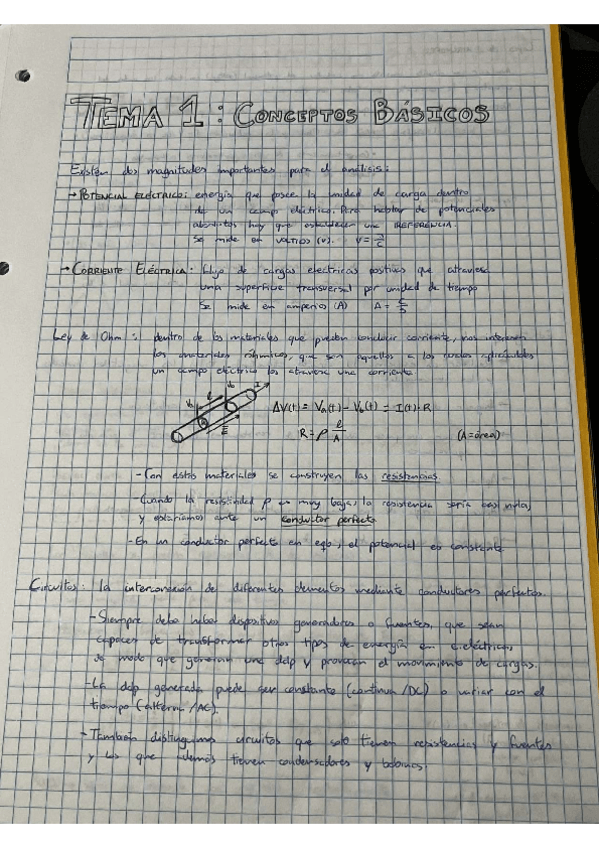 TEMA 1: CONCEPTOS BÁSICOS
Existen dos magnitudes importantes para el análisis:
→ POTENCIAL ELÉCTRICO: energía que posee la unidad de carga dentro
de un campo eléctrico. Para hablar de potenciales
absolutos hay que establecer una REFERENCIA.
Se mide en VOLTIOS (V). V = J/C
→ CORRIENTE ELÉCTRICA: flujo de cargas eléctricas positivas que atraviesa
una superficie transversal por unidad de tiempo
Se mide en amperios (A) A = C/s
Ley de Ohm: dentro de los materiales que pueden conducir corriente, nos interesan
los materiales óhmicos, que son aquellos a los cuales aplicándoles
un campo eléctrico los atraviesa una corriente.
Va l Vb I
E
ΔV(t) = Va(t) - Vb(t) = I(t)·R
R = ρ l/A (A = área)
- Con estos materiales se construyen las resistencias.
- Cuando la resistividad ρ es muy baja, la resistencia sería casi nula,
y estaríamos ante un conductor perfecto
- En un conductor perfecto en eqb, el potencial es constante.
Circuitos: la interconexión de diferentes elementos mediante conductores perfectos.
- Siempre debe haber dispositivos generadores o fuentes, que sean
capaces de transformar otros tipos de energía en e.eléctrica,
de modo que generan una ddp y provocan el movimiento de cargas.
- La ddp generada puede ser constante (continua/DC) o variar con el
tiempo (alterna/AC).
- También distinguimos circuitos que solo tienen resistencias y fuentes
y los que además tienen condensadores y bobinas.